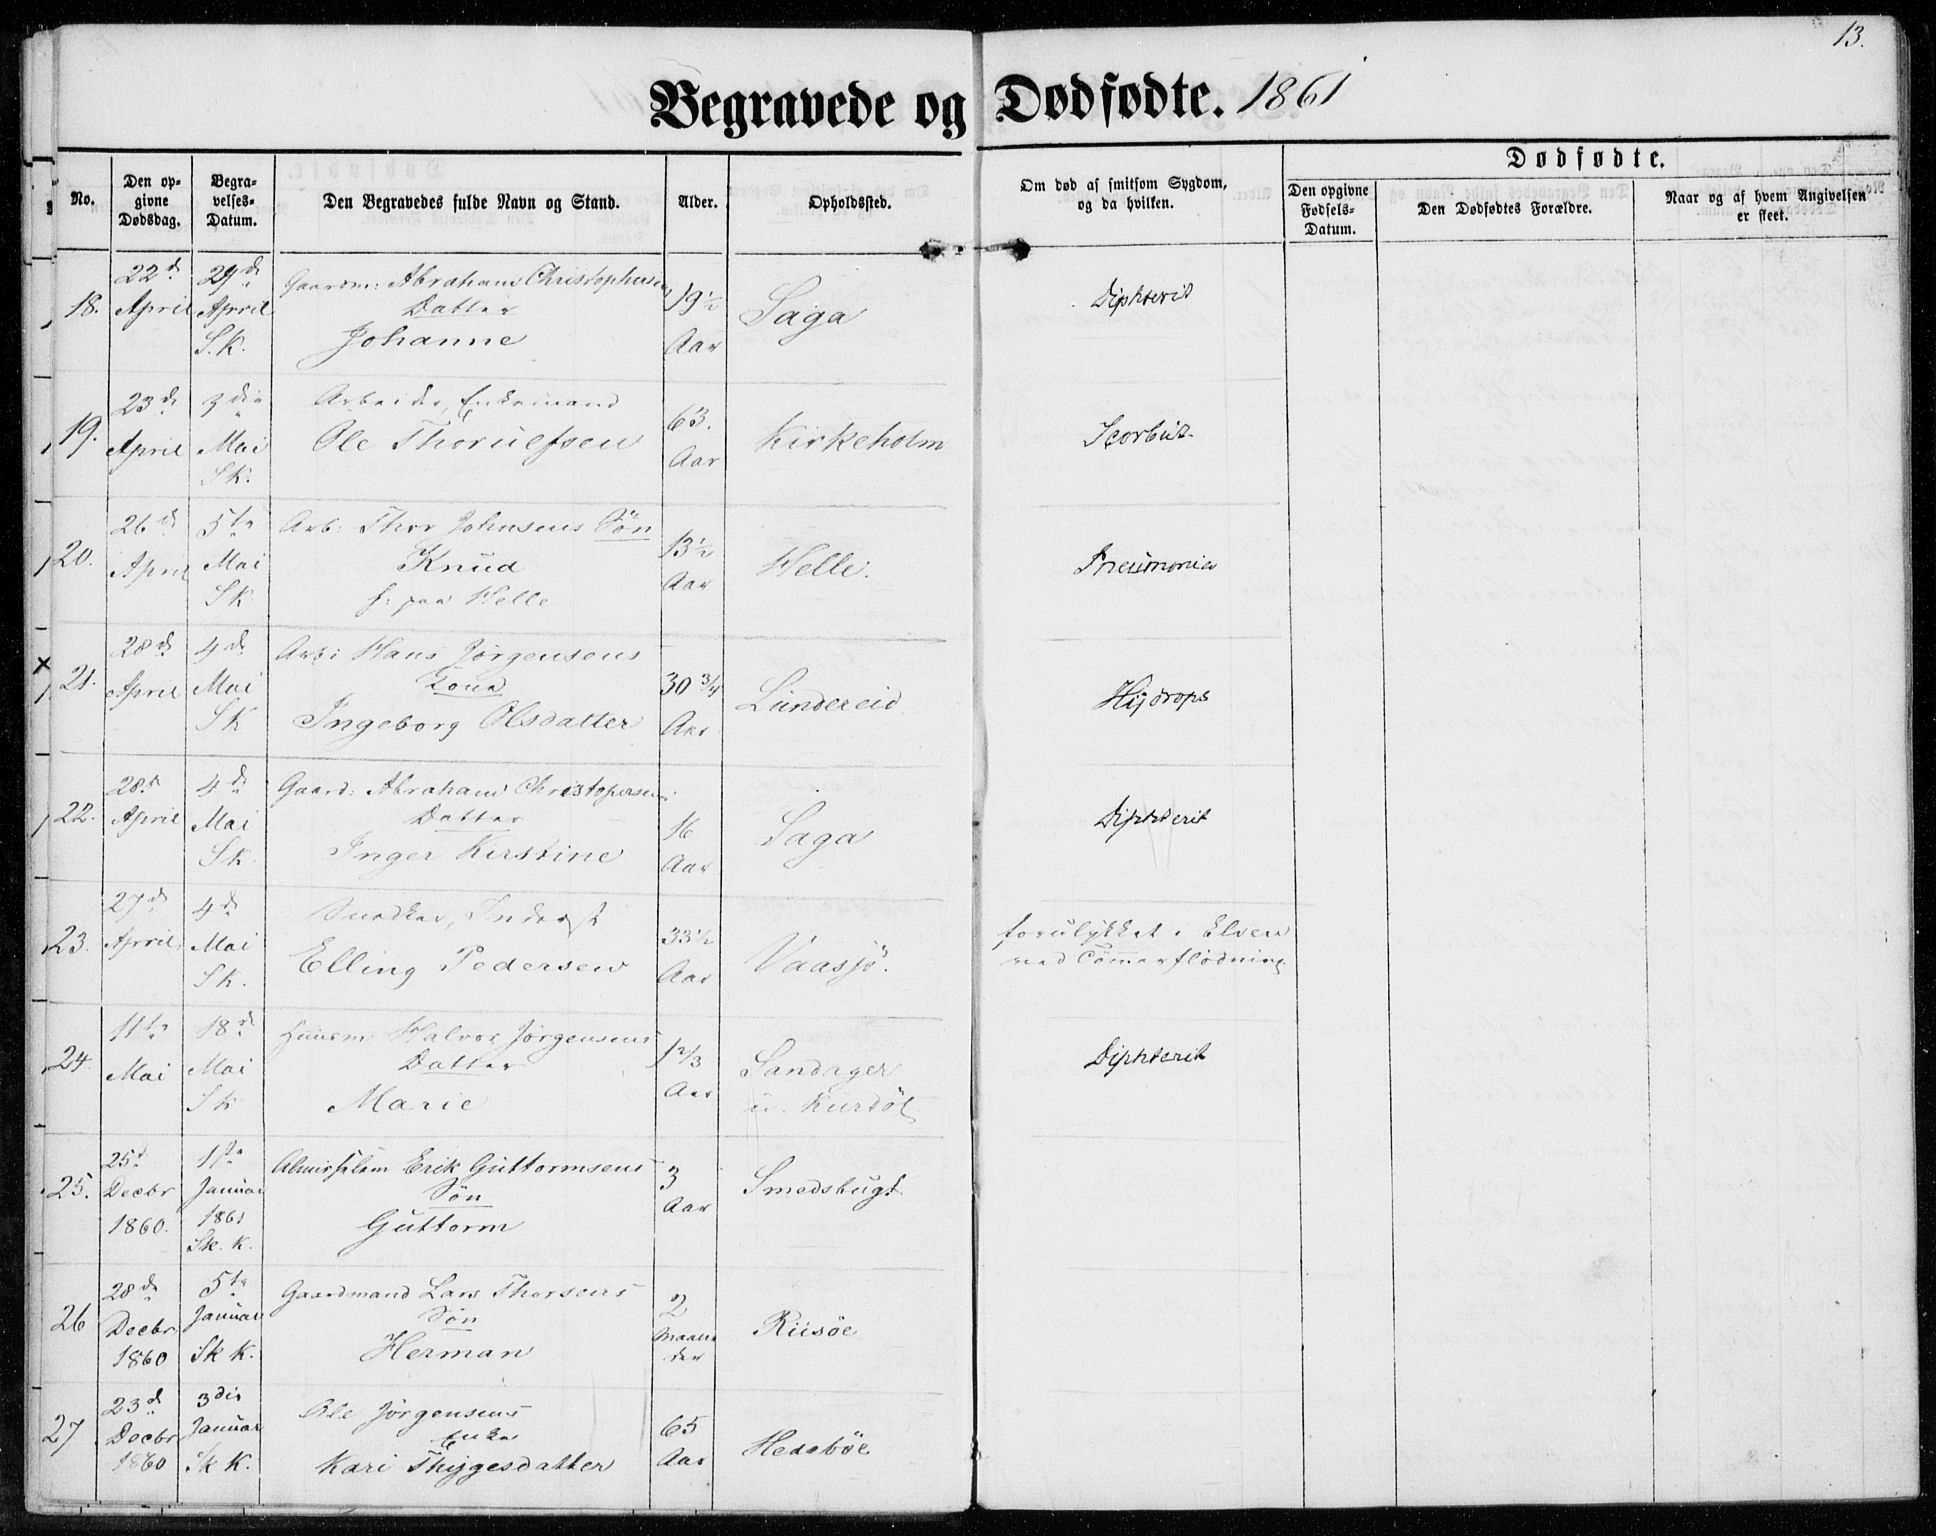 13.
Begravede og Dødfødte. 1861
No.
Den opgivne Dødsdag.
Begravelses-Datum.
Den Begravedes fulde Navn og Stand.
Alder.
Opholdssted.
Om død af smitsom Sygdom, og da hvilken.
Dødfødte.
Den opgivne Fødsels-Datum.
Den Dødfødtes Forældre.
Naar og af hvem Angivelsen er skeet.
18. 22d April 29d April S.K. Gaardm: Abrahams Christophersens Datter Johanne 19½ Aar Saga Diphterit
19. 23d April 3die Mai SK. Arbeider, Enkemand Ole Thorulfsen 63. Aar Kirkeholm Scorbut
20. 26d April 5te Mai SK Arb: Thor Johnsens Søn Knud f: paa Helle 13½ Aar Helle. Pneumonia
21. 28d April 4d Mai SK Arb: Hans Jørgensens Kona Ingeborg Olsdatter 30 3/4 Aar Lundereid Hydrops
22. 28d April 4d Mai SK. Gaard: Abrahams Christophersens Datter Inger Kirstine 16 Aar Saga Diphterit
23. 27d April 4d Mai SK. Snedker, Inderst Elling Pedersen 33½ Aar Vaasjø. forulykket i Elven ved Tømmerflødning
24. 11te Mai 18d Mai SK Huusm: Halvor Jørgensens Datter Marie 1 2/3 Aar Sandager u. Kurdøl Diphterit
25. 25d Decbr 1860. 1ste Januar 1861 Sk. K. Almisselem Erik Guttormsens Søn Guttorm 3 Aar Smedsbugt
26 28d Decbr 1860 5te Januar Sk K. Gaardmand Lars Thorsens Søn Herman 2 Maaneder Riisøe
27 23d Decbr 1860 3die Januar Sk K. Ole Jørgensens Enke Kari Thygesdatter 65 Aar Hedebøe